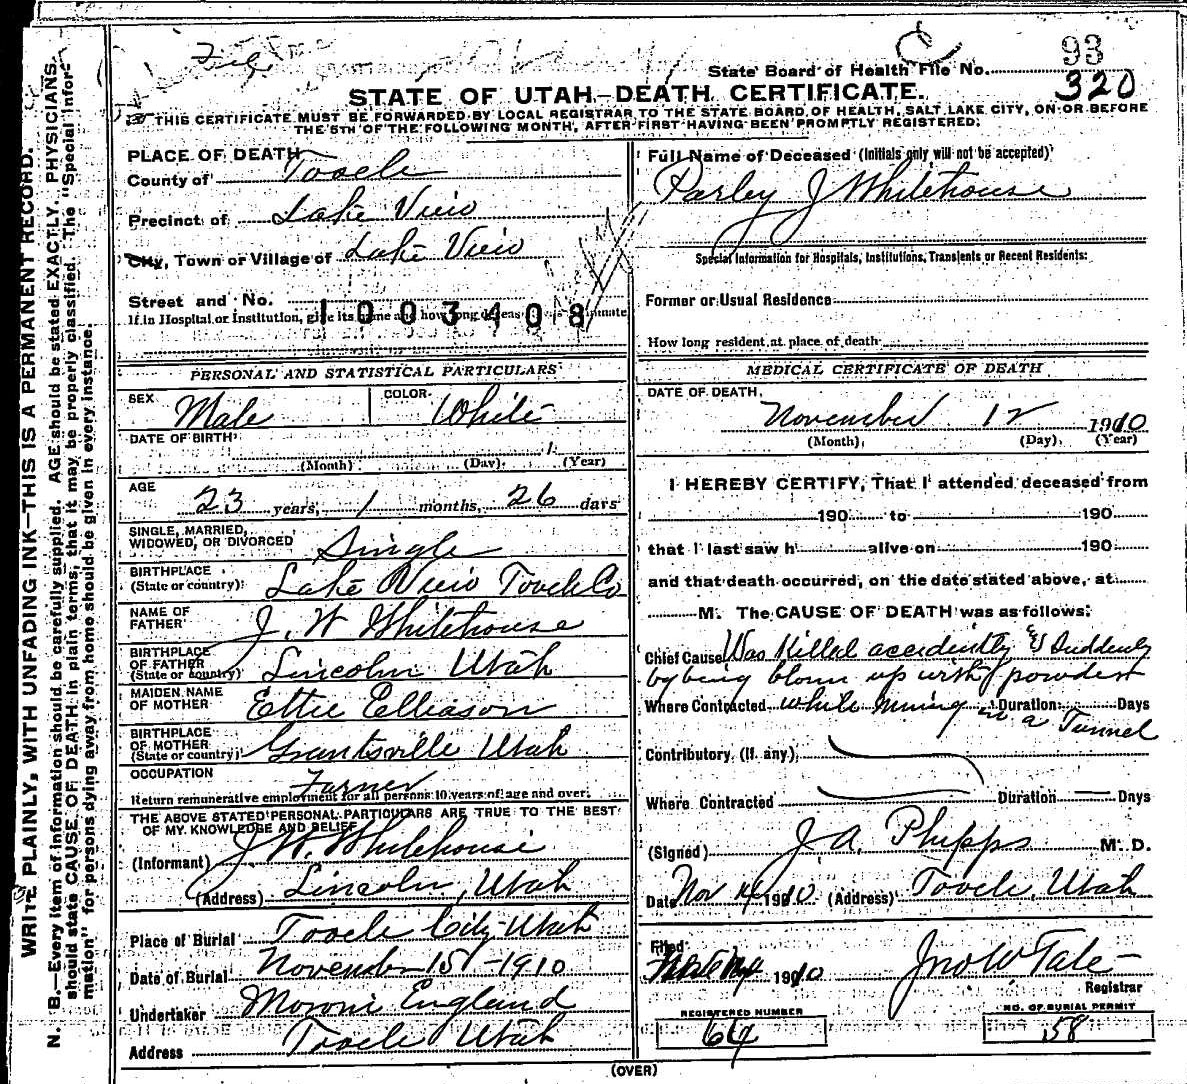 93
State Board of Health File No. 320
STATE OF UTAH—DEATH CERTIFICATE.
THIS CERTIFICATE MUST BE FORWARDED BY LOCAL REGISTRAR TO THE STATE BOARD OF HEALTH, SALT LAKE CITY, ON OR BEFORE
THE 5TH OF THE FOLLOWING MONTH, AFTER FIRST HAVING BEEN PROMPTLY REGISTERED.
WRITE PLAINLY, WITH UNFADING INK—THIS IS A PERMANENT RECORD.
N. B.—Every item of information should be carefully supplied. AGE should be stated EXACTLY. PHYSICIANS
should state CAUSE OF DEATH in plain terms, that it may be properly classified. The "Special Infor-
mation" for persons dying away from home should be given in every instance.
PLACE OF DEATH
County of Tooele
Precinct of Lake View
City, Town or Village of Lake View
Street and No.
1003408
If in Hospital or Institution, give its name and how long deceased was inmate
PERSONAL AND STATISTICAL PARTICULARS
SEX Male COLOR White
DATE OF BIRTH
(Month) (Day) (Year)
AGE
23 years, 1 months, 26 days
SINGLE, MARRIED,
WIDOWED, OR DIVORCED Single
BIRTHPLACE
(State or country) Lake View Tooele Co
NAME OF
FATHER J. W Whitehouse
BIRTHPLACE
OF FATHER
(State or country) Lincoln Utah
MAIDEN NAME
OF MOTHER Ettie Elleason
BIRTHPLACE
OF MOTHER
(State or country) Grantsville Utah
OCCUPATION Farmer
Return remunerative employment for all persons 10 years of age and over.
THE ABOVE STATED PERSONAL PARTICULARS ARE TRUE TO THE BEST
OF MY KNOWLEDGE AND BELIEF
(Informant) J. W. Whitehouse
(Address) Lincoln, Utah
Place of Burial Tooele City Utah
Date of Burial November 15 - 1910
Undertaker Moroni England
Address Tooele Utah
Full Name of Deceased (Initials only will not be accepted)
Parley J Whitehouse
Special Information for Hospitals, Institutions, Transients or Recent Residents:
Former or Usual Residence
How long resident at place of death
MEDICAL CERTIFICATE OF DEATH
DATE OF DEATH
November 12 1910
(Month) (Day) (Year)
I HEREBY CERTIFY, That I attended deceased from
190 to 190
that I last saw h alive on 190
and that death occurred, on the date stated above, at
M. The CAUSE OF DEATH was as follows:
Chief Cause Was Killed accidently & Suddenly
by being blown up with powder
Where Contracted while mining in a Tunnel Duration Days
Contributory (If any)
Where Contracted Duration Days
(Signed) J. A. Phipps M. D.
Date Nov 14 1910. (Address) Tooele, Utah
Filed 1910 Jno W Tate
Registrar
REGISTERED NUMBER
64
NO. OF BURIAL PERMIT
58
(OVER)